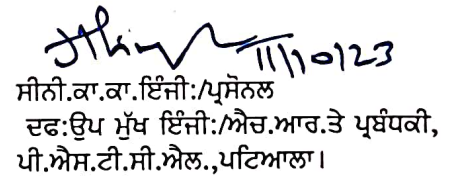 11/10/23
ਸੀਨੀ.ਕਾ.ਕਾ.ਇੰਜੀ:/ਪ੍ਰਸੋਨਲ
ਦਫ:ਉਪ ਮੁੱਖ ਇੰਜੀ:/ਐਚ.ਆਰ.ਤੇ ਪ੍ਰਬੰਧਕੀ,
ਪੀ.ਐਸ.ਟੀ.ਸੀ.ਐਲ.,ਪਟਿਆਲਾ।